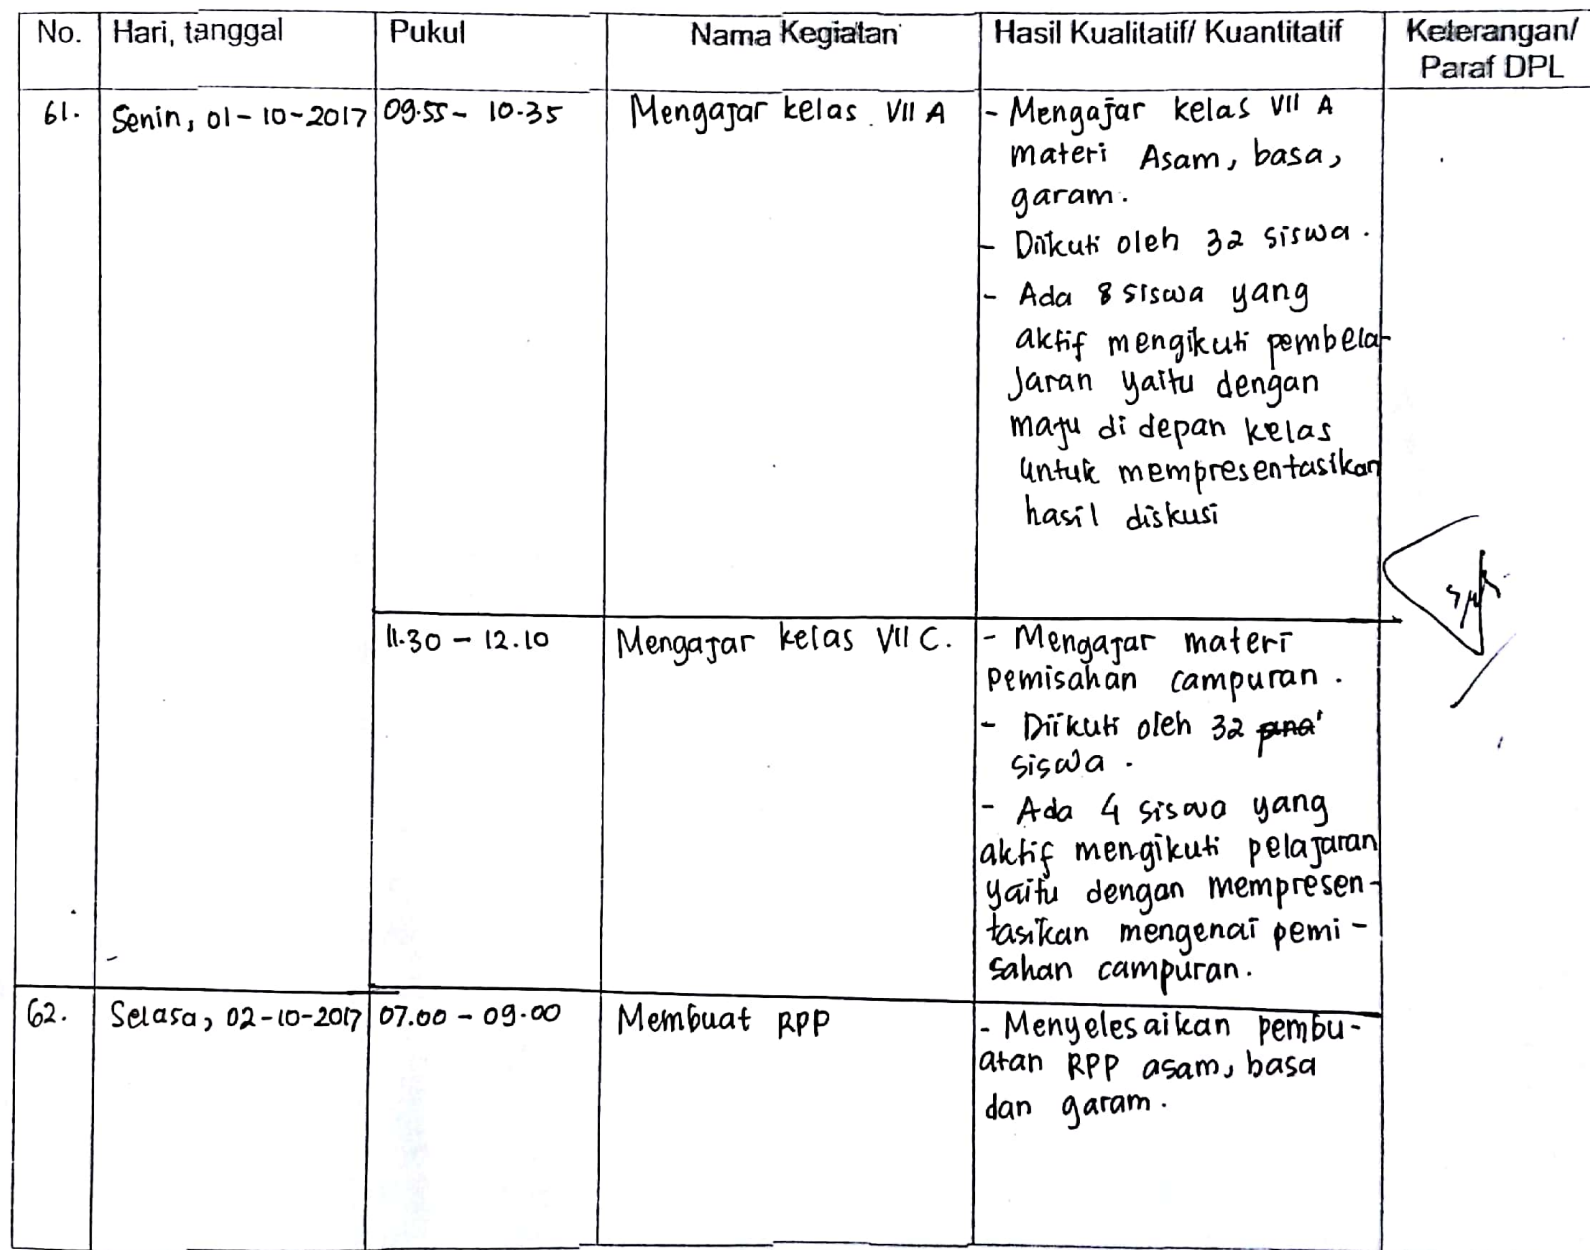 No. Hari, tanggal Pukul Nama Kegiatan Hasil Kualitatif/ Kuantitatif Keterangan/
Paraf DPL
61. Senin, 01-10-2017 09.55 - 10.35 Mengajar kelas VII A - Mengajar kelas VII A
materi Asam, basa,
garam.
- Diikuti oleh 32 siswa.
- Ada 8 siswa yang
aktif mengikuti pembela-
jaran yaitu dengan
maju di depan kelas
untuk mempresentasikan
hasil diskusi
11.30 - 12.10 Mengajar kelas VII C. - Mengajar materi
pemisahan campuran.
- Diikuti oleh 32
siswa.
- Ada 4 siswa yang
aktif mengikuti pelajaran
yaitu dengan mempresen-
tasikan mengenai pemi-
sahan campuran.
62. Selasa, 02-10-2017 07.00 - 09.00 Membuat RPP - Menyelesaikan pembu-
atan RPP asam, basa
dan garam.